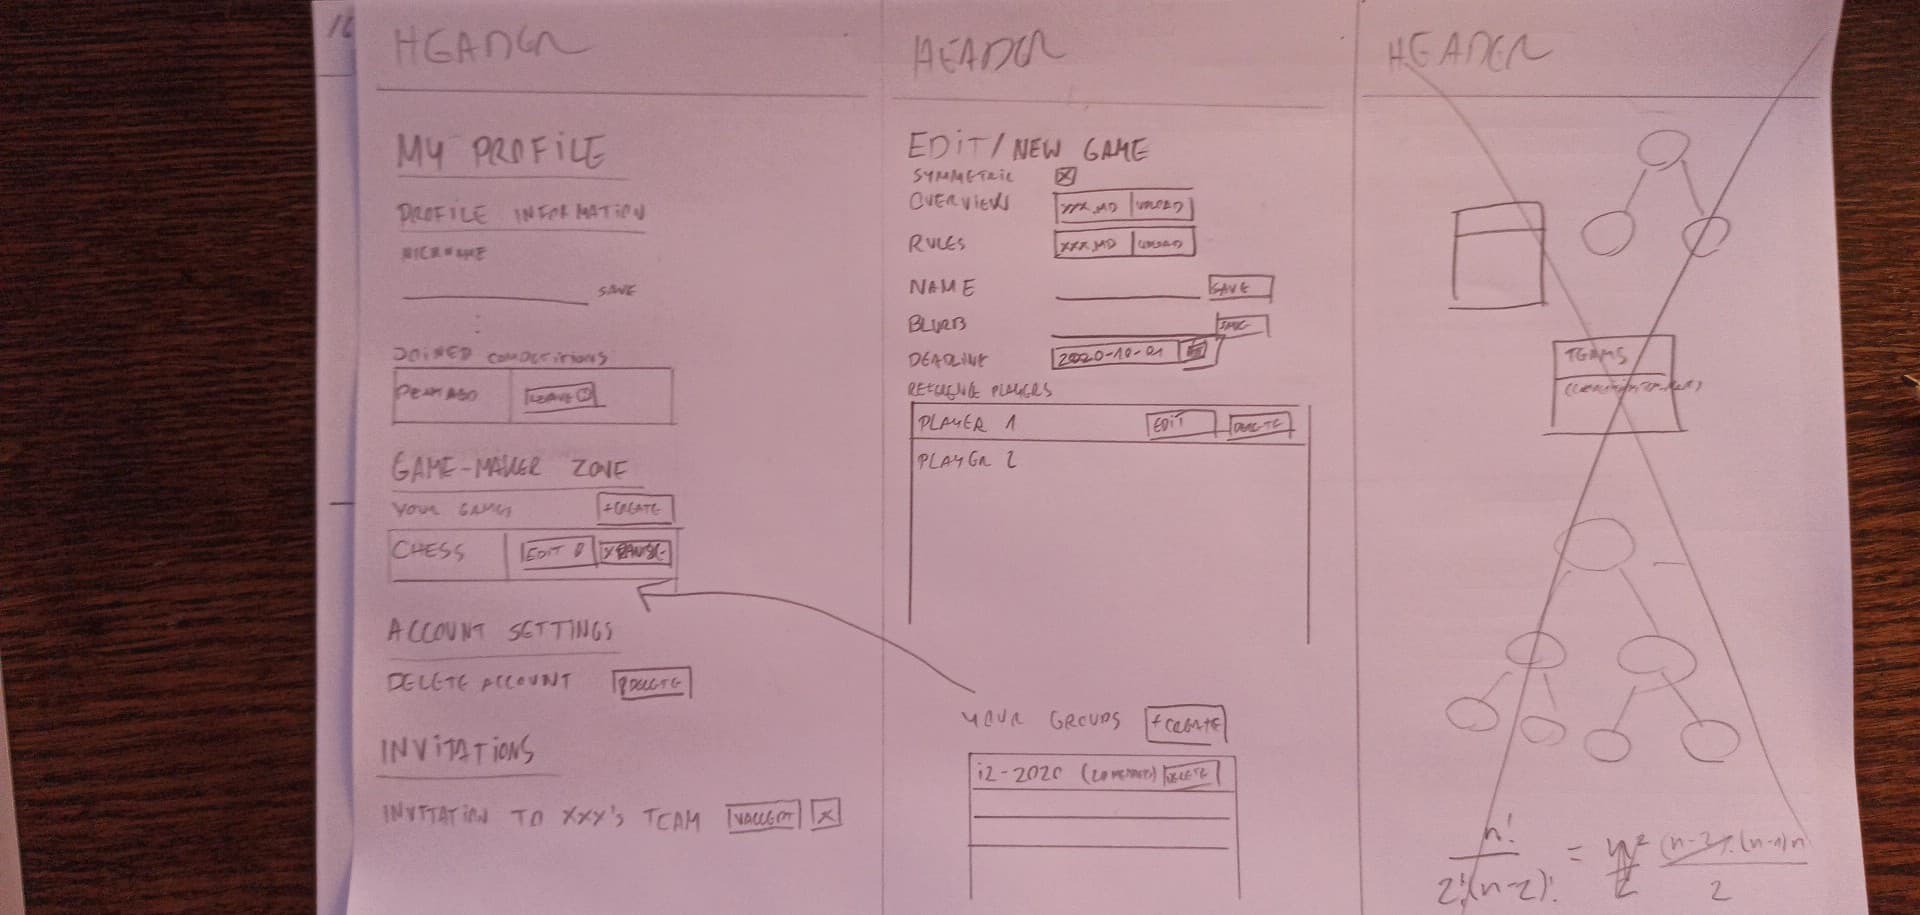 HEADER
MY PROFILE
PROFILE INFORMATION
NICKNAME
SAVE
JOINED COMPETITIONS
LEAVE
GAME-MAKER ZONE
YOUR GAMES +CREATE
CHESS EDIT
ACCOUNT SETTINGS
DELETE ACCOUNT DELETE
INVITATIONS
INVITATION TO XXX'S TEAM VACCEPT X
HEADER
EDIT/NEW GAME
SYMMETRIC X
OVERVIEW XXX.MD UPLOAD
RULES XXX.MD UPLOAD
NAME SAVE
BLURB SAVE
DEADLINE 2020-10-01
REFERENCE PLAYERS
PLAYER 1 EDIT DELETE
PLAYER 2
YOUR GROUPS +CREATE
i2-2020 (20 MEMBERS) DELETE
HEADER
TEAMS
n!
2!(n-2)! = (n-2)!(n-1)n
2